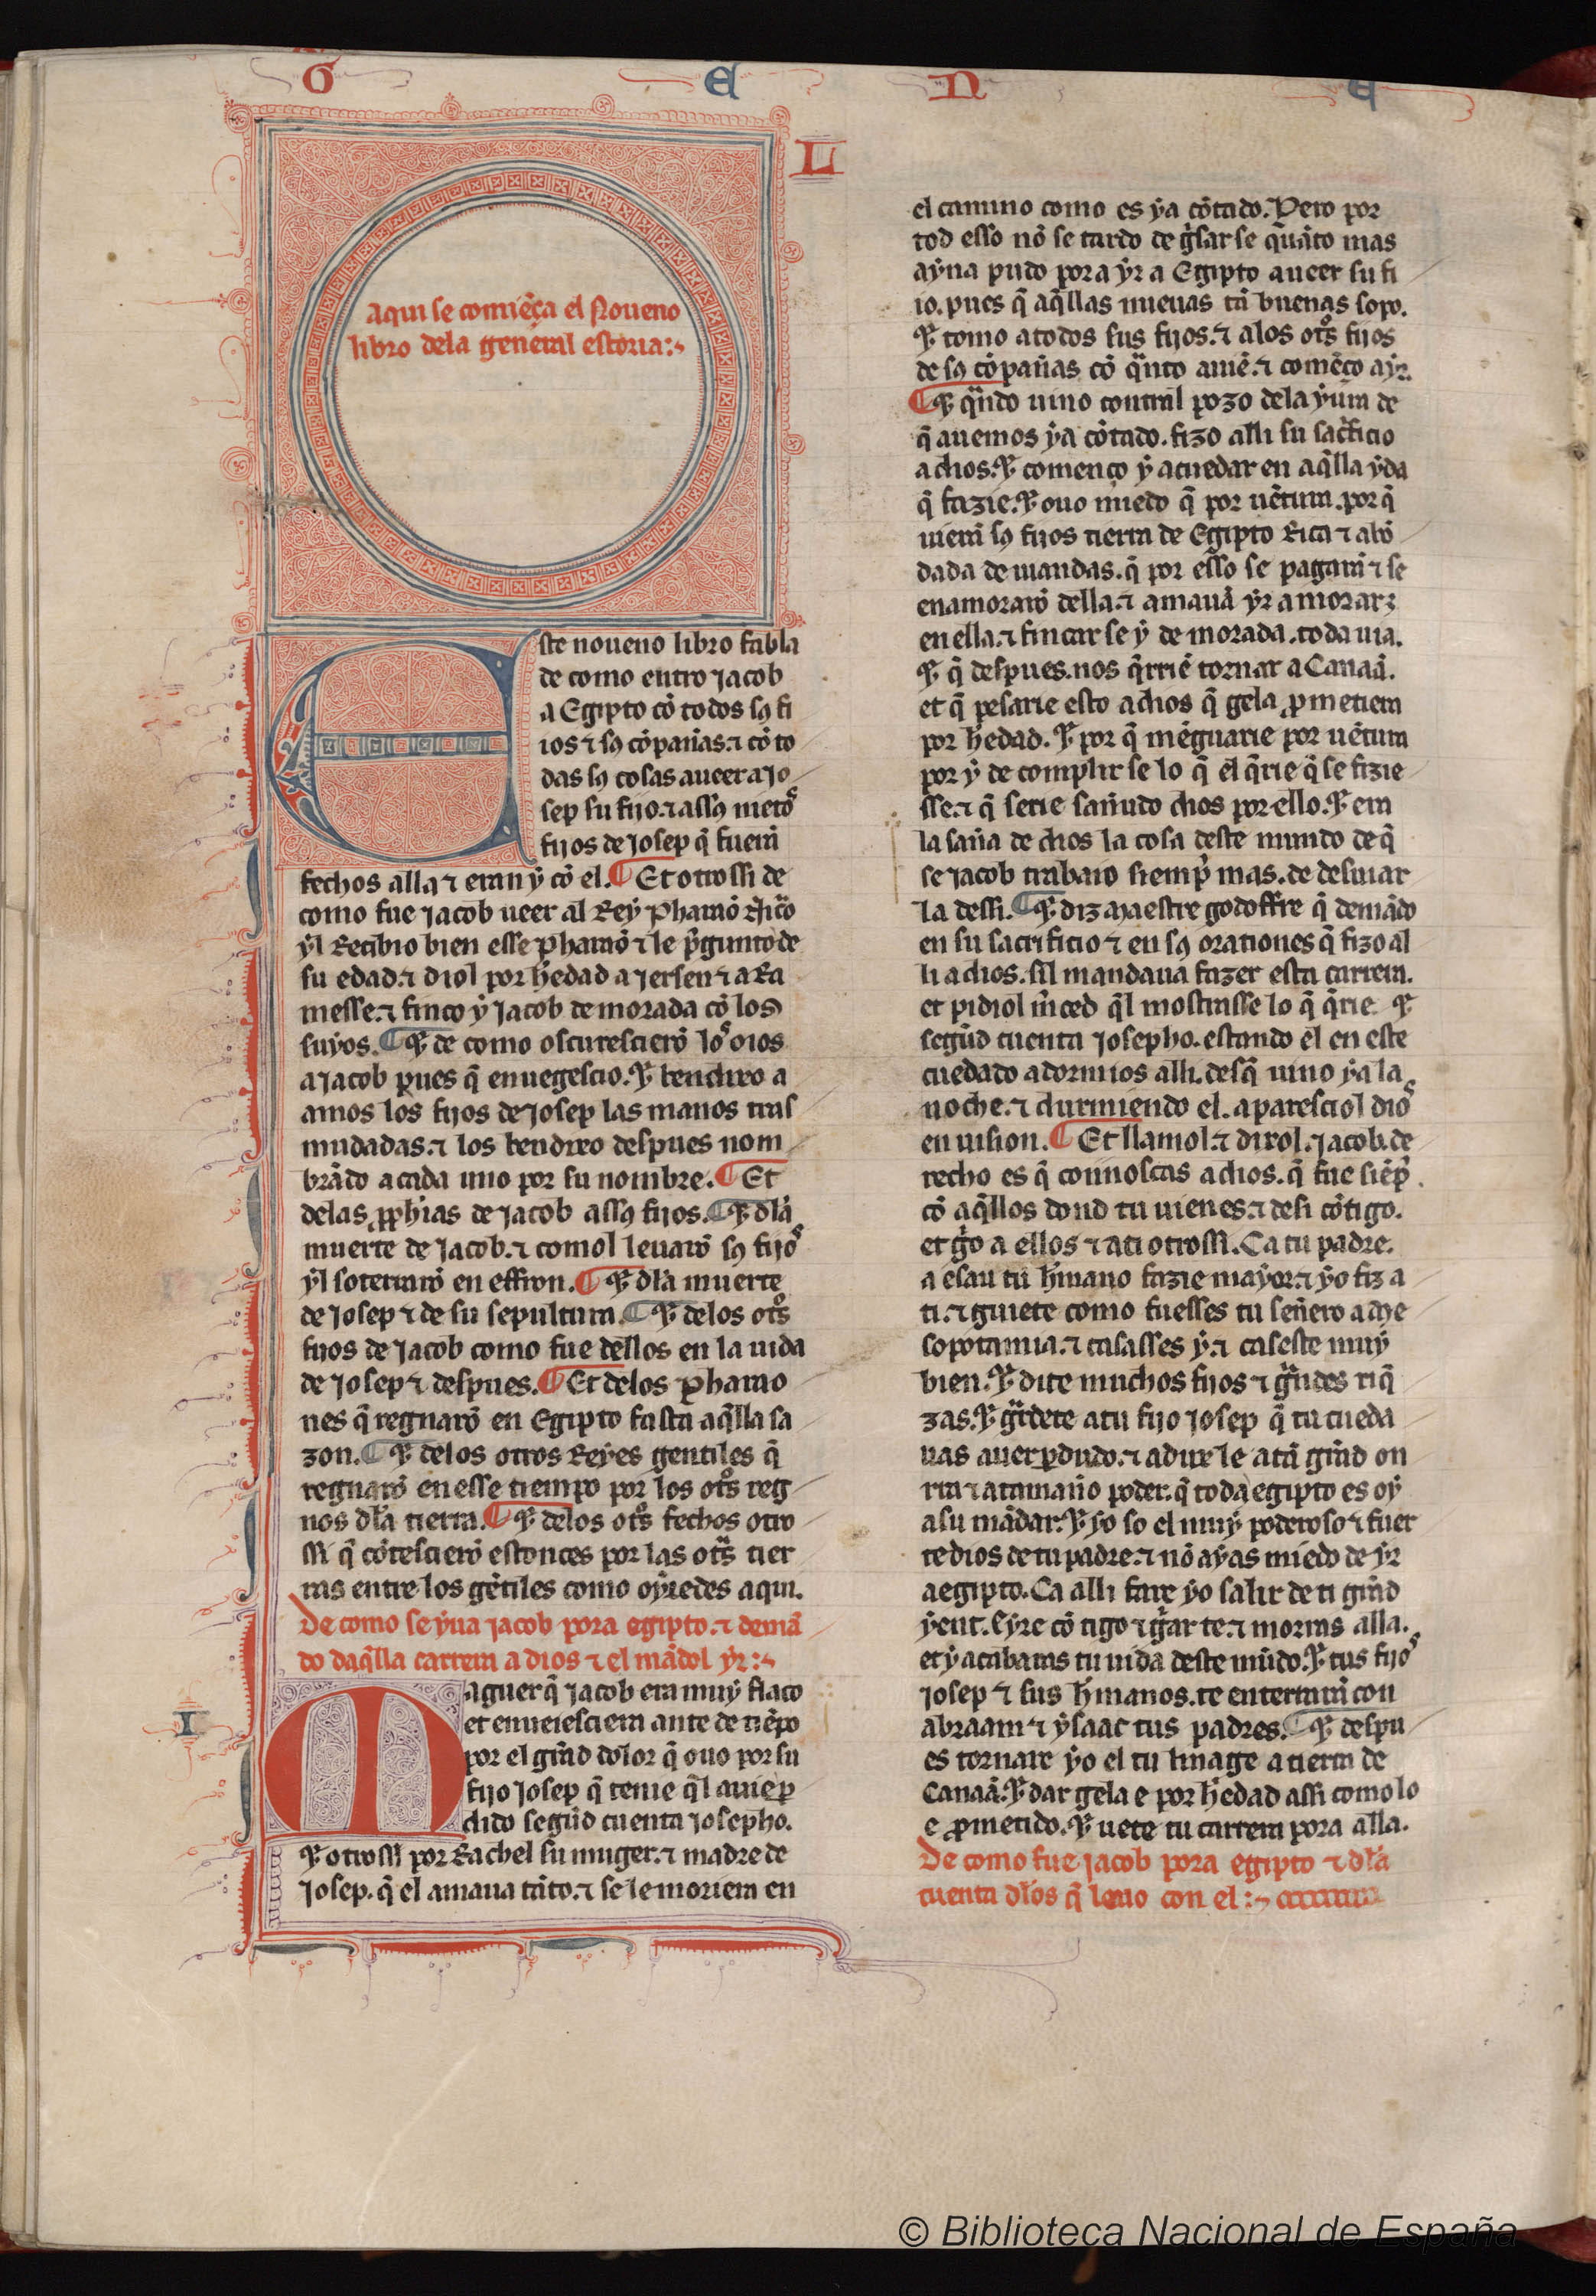 G E N E
L
aqui se comiẽça el Noueno
libro dela general estoria:~
Este noueno libro fabla
de como entro Jacob
a Egipto cõ todos sꝯ fi
ios ⁊ sꝯ cõpañas. ⁊ cõ to
das sꝯ cosas aueer a Jo
sep su fijo. ⁊ assꝯ nietos
fijos de Josep q̃ fuerã
fechos alla ⁊ eran ẏ cõ el. ¶ Et otrossi de
como fue Jacob ueer al Rey Pharaõ
ẏl Recibio bien esse Pharaõ ⁊ le p̃gunto de
su edad. ⁊ diol por h̃edad a Jersen ⁊ a Ra
messe. ⁊ finco ẏ Jacob de morada cõ los
suẏos. ¶ Et de como oscurescierõ los oios
a Jacob pues q̃ enuegescio. Et bendixo a
amos los fijos de Josep las manos tras
mudadas. ⁊ los bendixo despues nom
brãdo a cada uno por su nombre. ¶ Et
delas ꝓph̃ias de Jacob assꝯ fijos. ¶ Et dla
muerte de Jacob. ⁊ comol leuarõ sꝯ fijos
ẏl soterrarõ en effron. ¶ Et dla muerte
de Josep ⁊ de su sepultura. ¶ Et delos otros
fijos de Jacob como fue dellos en la uida
de Josep ⁊ despues. ¶ Et delos Pharao
nes q̃ regnarõ en Egipto fasta aq̃lla sa
zon. ¶ Et delos otros Reẏes gentiles q̃
regnarõ en esse tiempo por los otros reg
nos dla tierra. ¶ Et delos otros fechos otro
ssi q̃ cõtescierõ estonces por las otras tier
ras entre los gẽtiles como oẏredes aqui.
De como se ẏua Jacob pora egipto. ⁊ demã
do daq̃lla carrera a dios ⁊ el mãdol ẏr:~
I
Maguer q̃ Jacob era muẏ flaco
et enueiesciera ante de tiẽpo
por el grãd dolor q̃ ouo por su
fijo Josep q̃ tenie q̃l auie ꝑ
dido segũd cuenta Josepho.
Et otrossi por Rachel su muger. ⁊ madre de
Josep. q̃ el amaua tãto. ⁊ se le moriera en
el camino como es ẏa cõtado. Pero por
tod esso nõ se tardo de g̃sar se quãto mas
aẏna pudo pora ẏr a Egipto aueer su fi
io. pues q̃ aq̃llas nueuas tã buenas sopo.
Et tomo atodos sus fijos. ⁊ alos otros fijos
de sꝯ cõpañas cõ q̃nto auiẽ. ⁊ comẽço aẏr.
¶ Et q̃ndo uino contral pozo dela ẏura de
q̃ auemos ẏa cõtado. fizo alli su sac̃ficio
a dios. Et començo ẏ acuedar en aq̃lla ẏda
q̃ fazie. Et ouo miedo q̃ por uẽtura. por q̃
uierã sꝯ fijos tierra de Egipto Rica ⁊ abõ
dada de uiandas. q̃ por esso se pagarã ⁊ se
enamorarõ della. ⁊ amauã ẏr a morar
en ella. ⁊ fincar se ẏ de morada. toda uia.
Et q̃ despues. nos q̃rriẽ tornar a Canaã.
et q̃ pesarie esto a dios q̃ gela ꝓmetiera
por h̃edad. Et por q̃ mẽguarie por uẽtura
por ẏ de complir se lo q̃ el q̃rie q̃ se fizie
sse. ⁊ q̃ serie sañudo dios por ello. Et era
la saña de dios la cosa deste mundo de q̃
se Jacob trabaio siemp̃ mas. de desuiar
la dessi. ¶ Et diz Maestre godoffre q̃ demãdo
en su sacrificio ⁊ en sꝯ orationes q̃ fizo al
li a dios. sil mandaua fazer esta carrera.
et pidiol m̃ced q̃l mostrasse lo q̃ q̃rie. Et
segũd cuenta Josepho. estando el en este
cuedado adormios alli. desq̃ uino ẏa la
noche. ⁊ durmiendo el. aparesciol dios
en uision. ¶ Et llamol. ⁊ dixol. Jacob. de
recho es q̃ connoscas a dios. q̃ fue siẽp̃
cõ aq̃llos dond tu uienes. ⁊ desi cõtigo.
et g̃o a ellos ⁊ ati otrossi. Ca tu padre.
a esau tu h̃mano fazie maẏor. ⁊ ẏo fiz a
ti. ⁊ guiete como fuesses tu señero a Me
sopotamia. ⁊ casasses ẏ. ⁊ caseste muẏ
bien. Et dite muchos fijos ⁊ g̃ndes riq̃
zas. Et g̃rdete atu fijo Josep q̃ tu cueda
uas auer ꝑdudo. ⁊ adux le atã grãd on
rra ⁊ atamaño poder. q̃ toda egipto es oẏ
asu mãdar. Et ẏo so el muẏ poderoso ⁊ fuer
te dios de tu padre. ⁊ nõ aẏas miedo de ẏr
aegipto. Ca alli fare ẏo salir de ti grãd
ẏent. Eẏre cõ tigo ⁊ g̃ar te. ⁊ morras alla.
et ẏ acabaras tu uida deste mũdo. Et tus fijos
Josep ⁊ sus h̃manos. te enterrarã con
abraam ⁊ ẏsaac tus padres. ¶ Et despu
es tornare ẏo el tu linage a tierra de
Canaã. Et dar gela e por h̃edad assi como lo
e ꝓmetido. Et uete tu carrera pora alla.
De como fue Jacob pora egipto ⁊ dla
cuenta dlos q̃ leuo con el:~
© Biblioteca Nacional de España